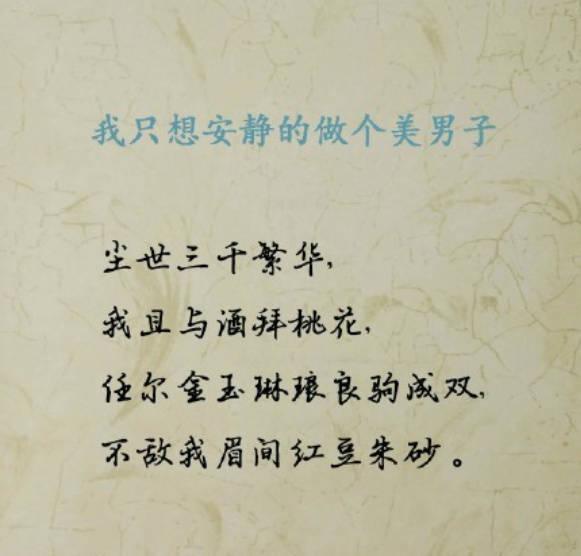 我只想安静的做个美男子
尘世三千繁华,
我且与酒拜桃花,
任尔金玉琳琅良驹成双,
不敌我眉间红豆朱砂。